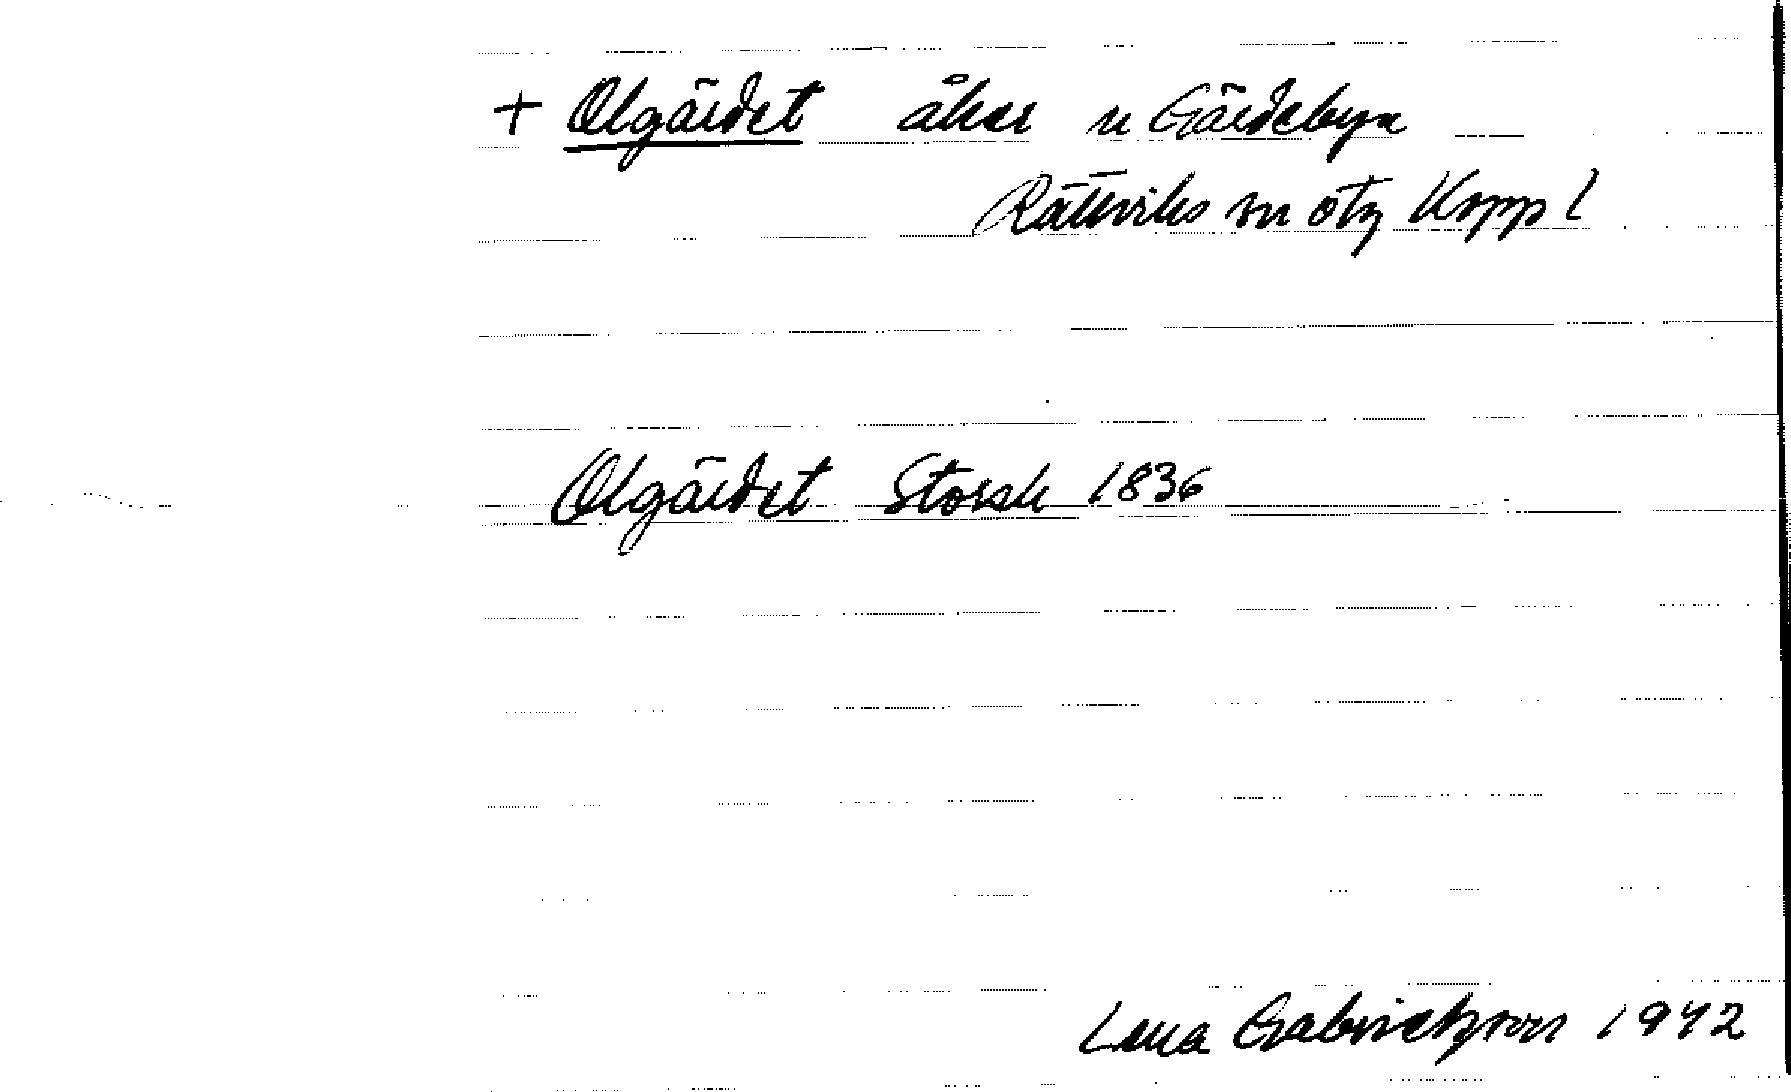 + Olgärdet åker n Gärdebyn
Rättviks sn otg Kopp l
Olgärdet Storsk 1836
Lena Gabrielsson 1942